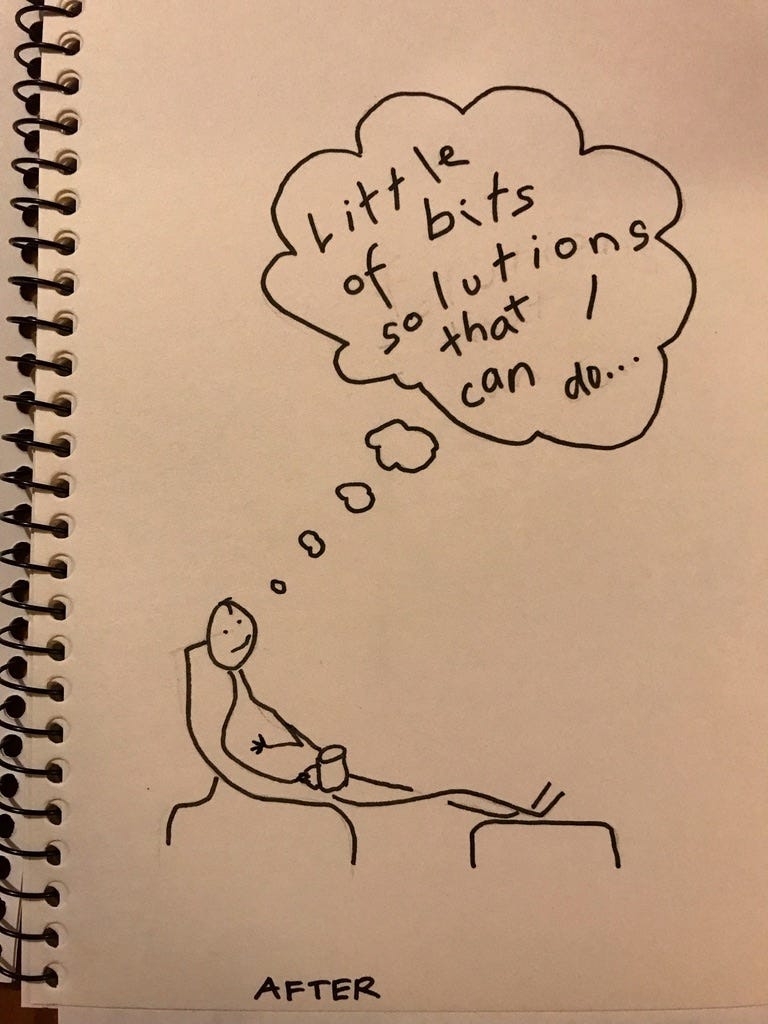 Little
bits
of solutions
that I
can do...
AFTER